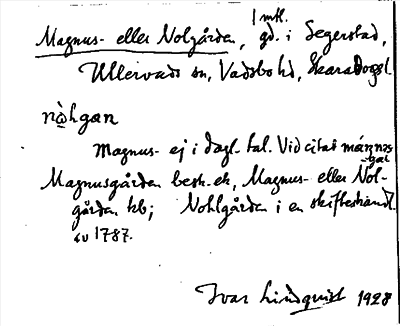 Magnus- eller Nolgården, 1 mtl. gd. i Segerstad,
Ullervads sn, Vadsbo hd, Skaraborgs l.
nò̱hgan
Magnus- ej i dagl. tal. Vid citat mánnas-
gar
Magnusgården besk. ek, Magnus- eller Nol-
gården kb; Nohlgården i en skifteshandl.
av 1787.
Ivar Lindquist 1928